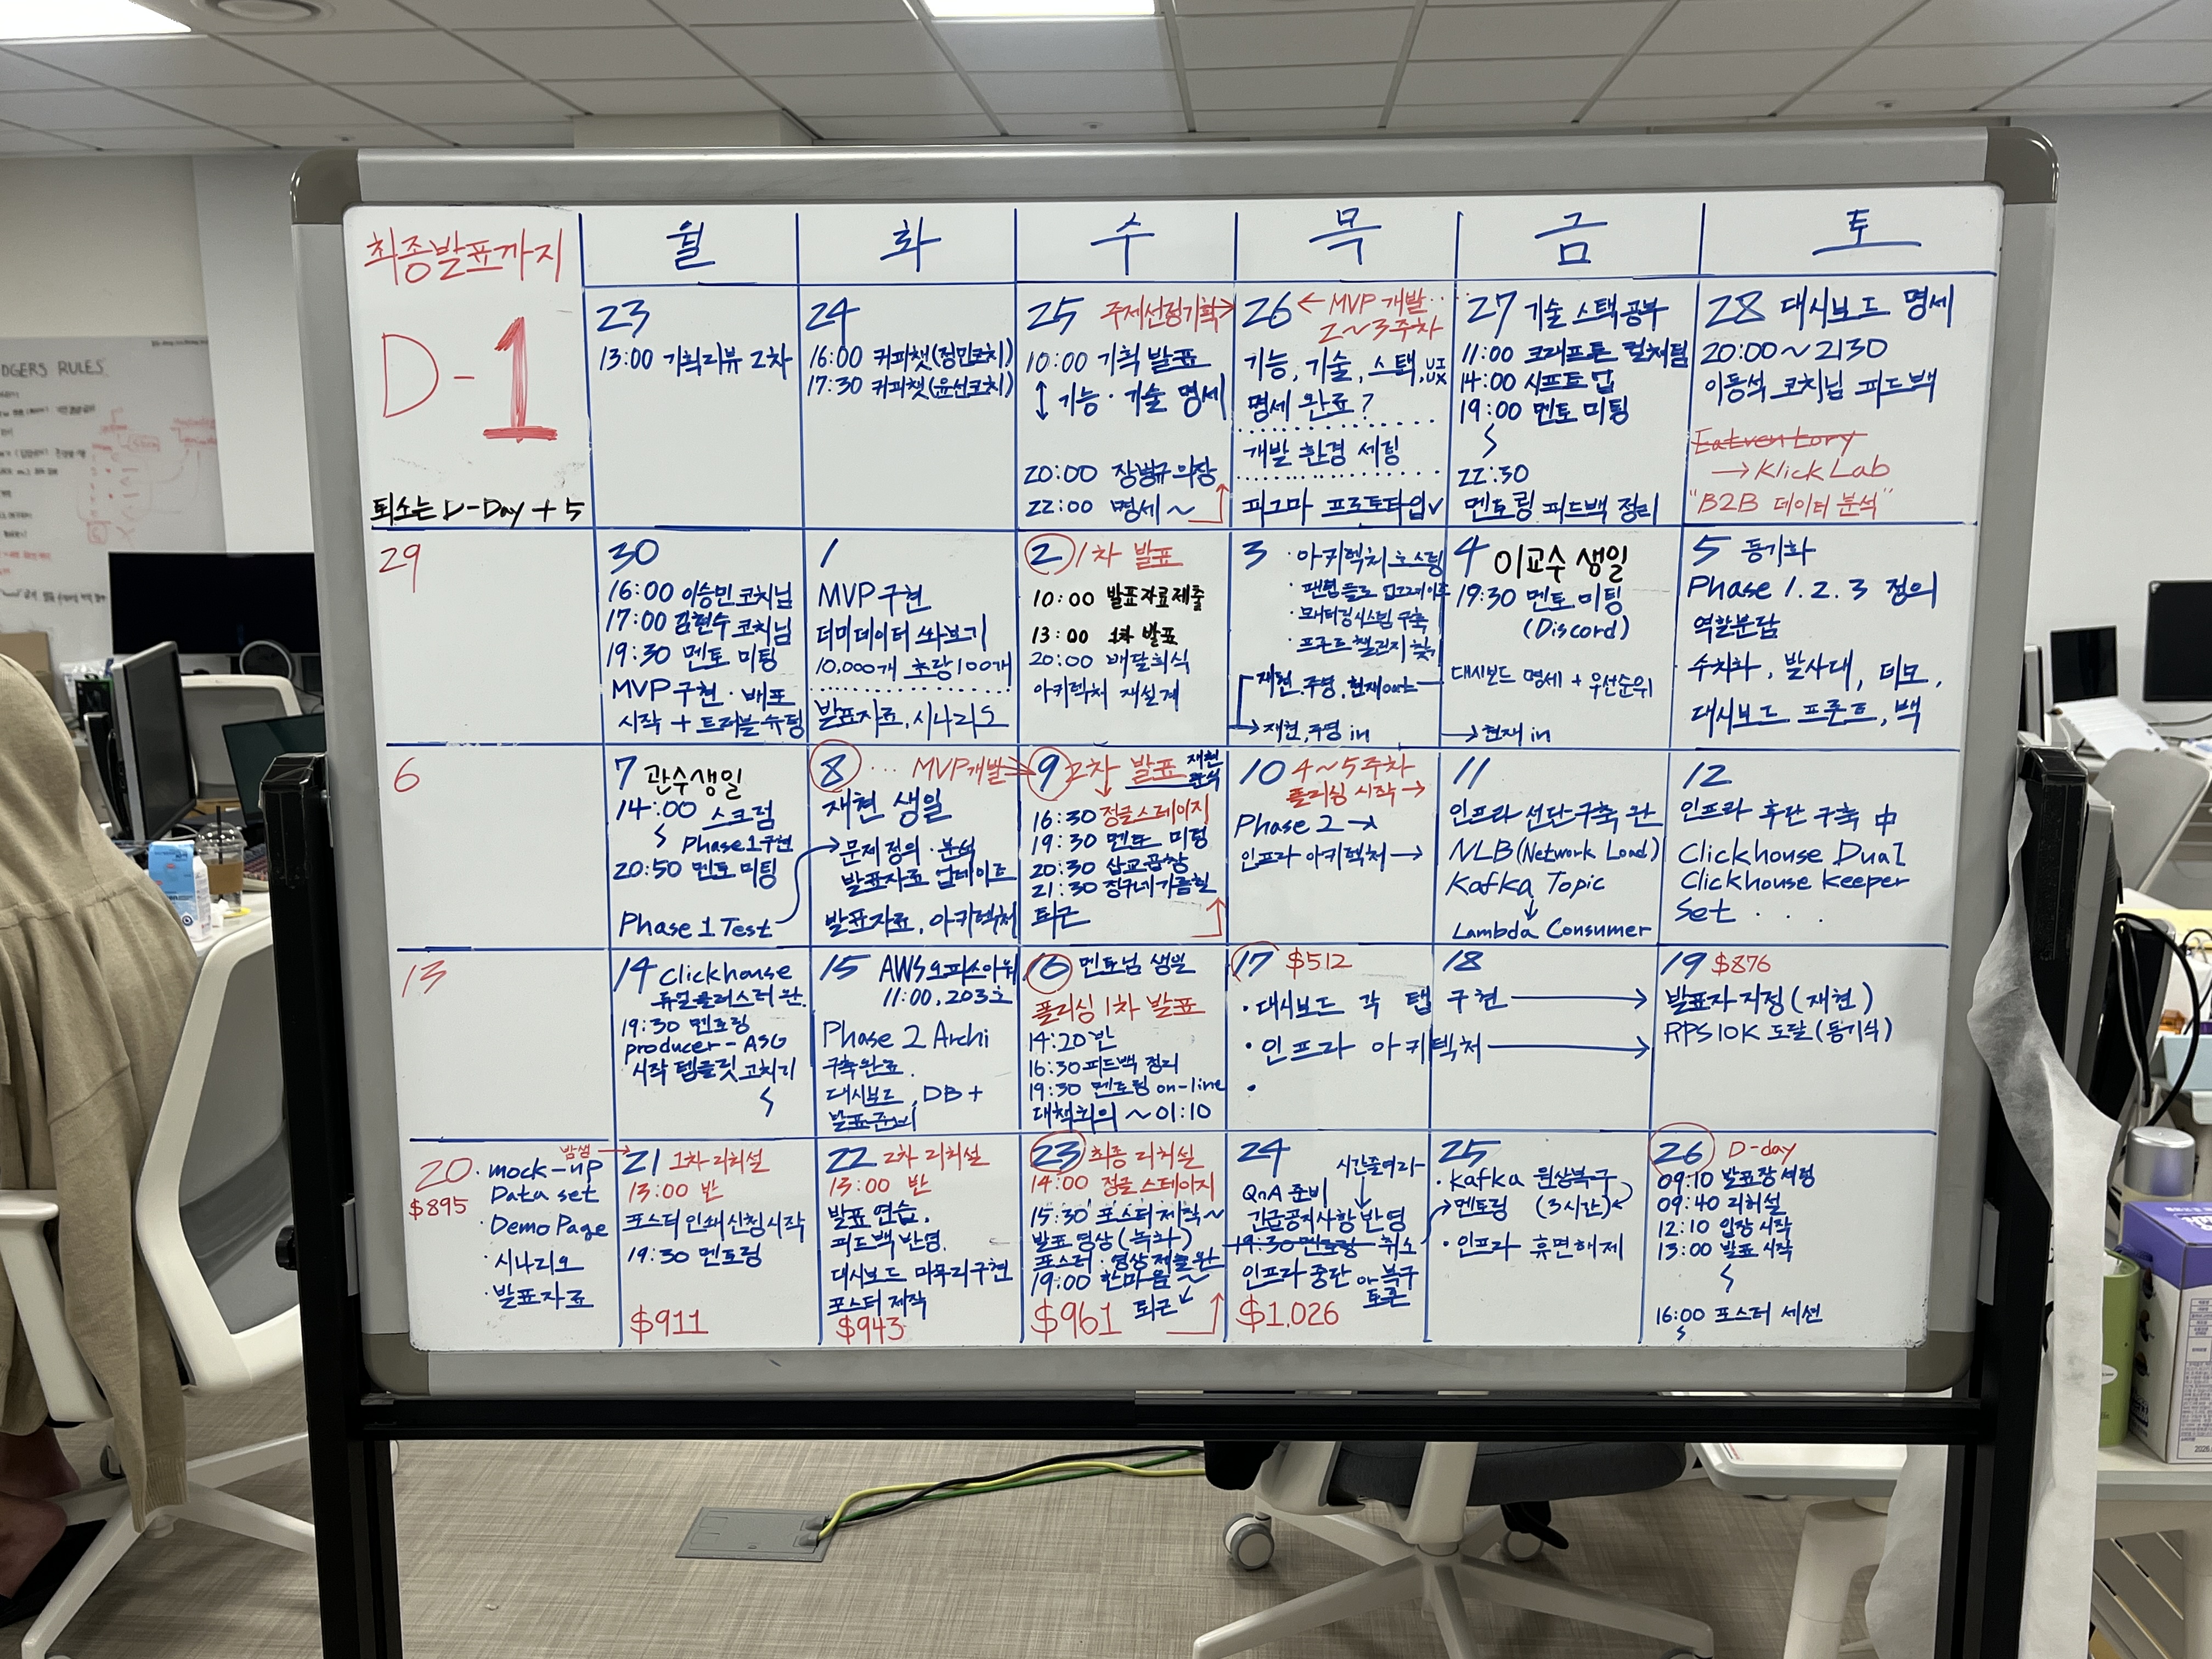 최종발표까지
D-1
퇴소는 D-Day + 5
월
화
수
목
금
토
23
13:00 기획리뷰 2차
24
16:00 커피챗(정민코치)
17:30 커피챗(윤선코치)
25 주제선정기획→
10:00 기획 발표
↕ 기능·기술 명세
20:00 장병규 의장
22:00 명세 ~
26 ← MVP 개발 ···
2~3주차
기능, 기술, 스택, UI UX
명세 완료?
개발 환경 세팅
피그마 프로토타입✓
27 기술 스택 공부
11:00 크래프톤 컬처팀
14:00 시프트업
19:00 멘토 미팅
22:30
멘토링 피드백 정리
28 대시보드 명세
20:00~2130
이동석 코치님 피드백
Eatventory
→ Klick Lab
"B2B 데이터 분석"
29
30
16:00 이승민 코치님
17:00 김현수 코치님
19:30 멘토 미팅
MVP 구현·배포
시작 + 트러블슈팅
1
MVP 구현
더미데이터 쏴보기
10,000개 초당 100개
발표자료, 시나리오
2 1차 발표
10:00 발표자료제출
13:00 1차 발표
20:00 배달회식
아키텍처 재설계
3 · 아키텍처
· 모니터링시스템 구축
· 프론트 챌린지 찾기
재현, 주영, 현재 out
→ 재현, 주영 in
4 이교수 생일
19:30 멘토 미팅
(Discord)
대시보드 명세 + 우선순위
→ 현재 in
5 동기화
Phase 1. 2. 3 정의
역할분담
수치화, 발사대, 데모,
대시보드 프론트, 백
6
7 관수생일
14:00 스크럼
Phase 1 구현
20:50 멘토 미팅
Phase 1 Test
8 ··· MVP개발→
재현 생일
문제 정의·분석
발표자료 업데이트
발표자료, 아키텍처
9 2차 발표 재현
16:30 정글스테이지
19:30 멘토 미팅
20:30 삽교곱창
21:30
퇴근
10 4~5주차
폴리싱 시작 →
Phase 2 →
인프라 아키텍처 →
11
인프라 선단구축 완
NLB (Network Load)
Kafka Topic
↓
Lambda Consumer
12
인프라 후단 구축 中
Clickhouse Dual
Clickhouse Keeper
Set · · ·
13
14 Clickhouse
듀얼클러스터 완.
19:30 멘토링
producer - ASG
시작 템플릿 고치기
15 AWS오피스아워
11:00, 203호
Phase 2 Archi
구축완료.
대시보드, DB +
발표준비
16 멘토님 생일
폴리싱 1차 발표
14:20 반
16:30 피드백 정리
19:30 멘토링 on-line
대책회의 ~01:10
17 $512
· 대시보드 각 탭 구현 →
· 인프라 아키텍처 →
·
18
19 $876
발표자 지정 (재현)
RPS 10K 도달 (동기식)
밤샘 →
20 · mock-up
Data set
$895
· Demo Page
· 시나리오
· 발표자료
21 1차 리허설
13:00 반
포스터 인쇄신청시작
19:30 멘토링
$911
22 2차 리허설
13:00 반
발표 연습,
피드백 반영.
대시보드 마무리구현
포스터 제작
$943
23 최종 리허설
14:00 정글 스테이지
15:30 포스터 제작~
발표 영상 (녹화)
포스터·영상제출완
19:00 한마음~
$961 퇴근
24
시간줄여라~
QnA 준비
긴급공지사항 반영
19:30 멘토링 취소
인프라 중단 or 복구
토론
$1,026
25
· kafka 원상복구
멘토링 (3시간)
· 인프라 휴면해제
26 D-day
09:10 발표장 세팅
09:40 리허설
12:10 입장 시작
13:00 발표 시작
16:00 포스터 세션